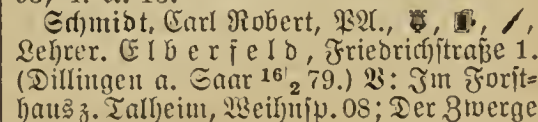 Schmidt, Carl Robert, PA.,
Lehrer. Elberfeld, Friedrichstraße 1.
(Dillingen a. Saar 16/2 79.) V: Im Forst-
haus z. Talheim, Weihnsp. 08; Der Zwerge